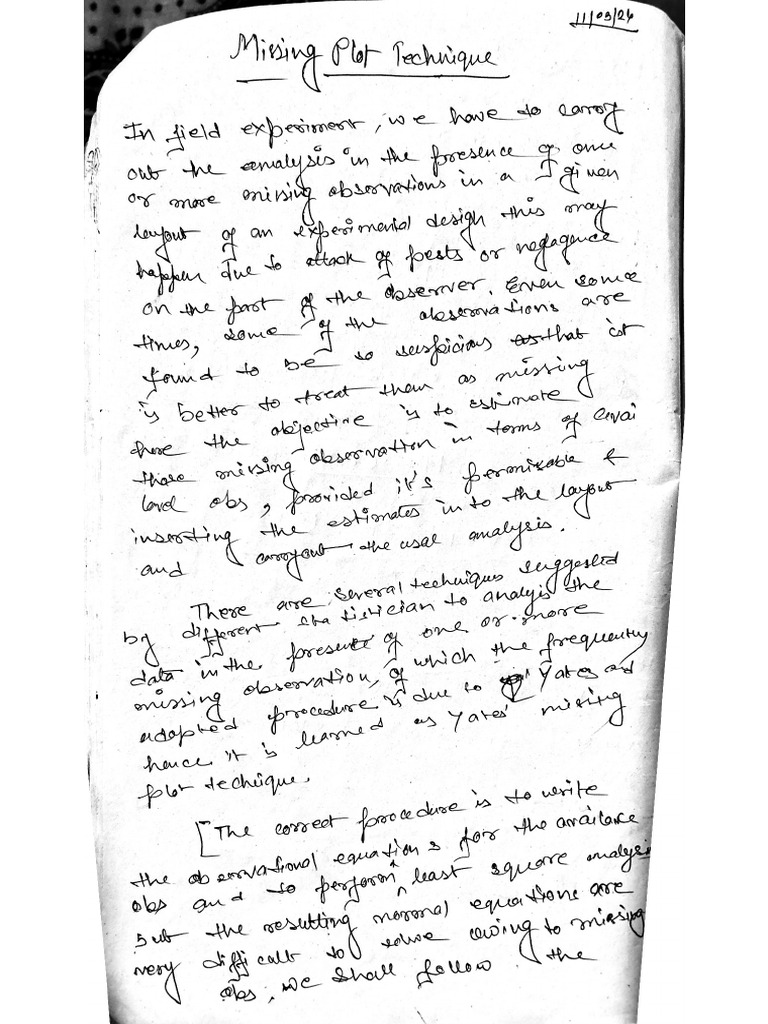 11/03/26
Missing Plot Technique
In field experiment, we have to carry
out the analysis in the presence of one
or more missing observations in a given
layout of an experimental design this may
happen due to attack of pests or neglagence
on the part of the observer. Even some
times, some of the observations are
found to be so suspicious that it
is better to treat them as missing
here the objective is to estimate
those missing observation in terms of avai
lavel obs, provided it's permissable &
inserting the estimates in to the layout
and carryout the usal analysis.
There are several techniques suggested
by different statistician to analyis the
data in the presence of one or more
missing observation, of which the frequently
adapted procedure is due to Yates and
hence it is learned as Yates' missing
plot technique.
[The correct procedure is to write
the observational equations for the availave
obs and to perform least square analysis
but the resulting normal equations are
very difficult to solve owing to missing
obs, we shall follow the